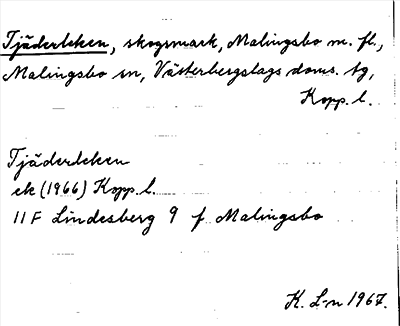 Tjäderleken, skogsmark, Malingsbo m. fl.,
Malingsbo sn, Västerbergslags doms. tg,
Kopp. l.
Tjäderleken
ek (1966) Kopp. l.
11F Lindesberg 9 f Malingsbo
K. L-n 1967.